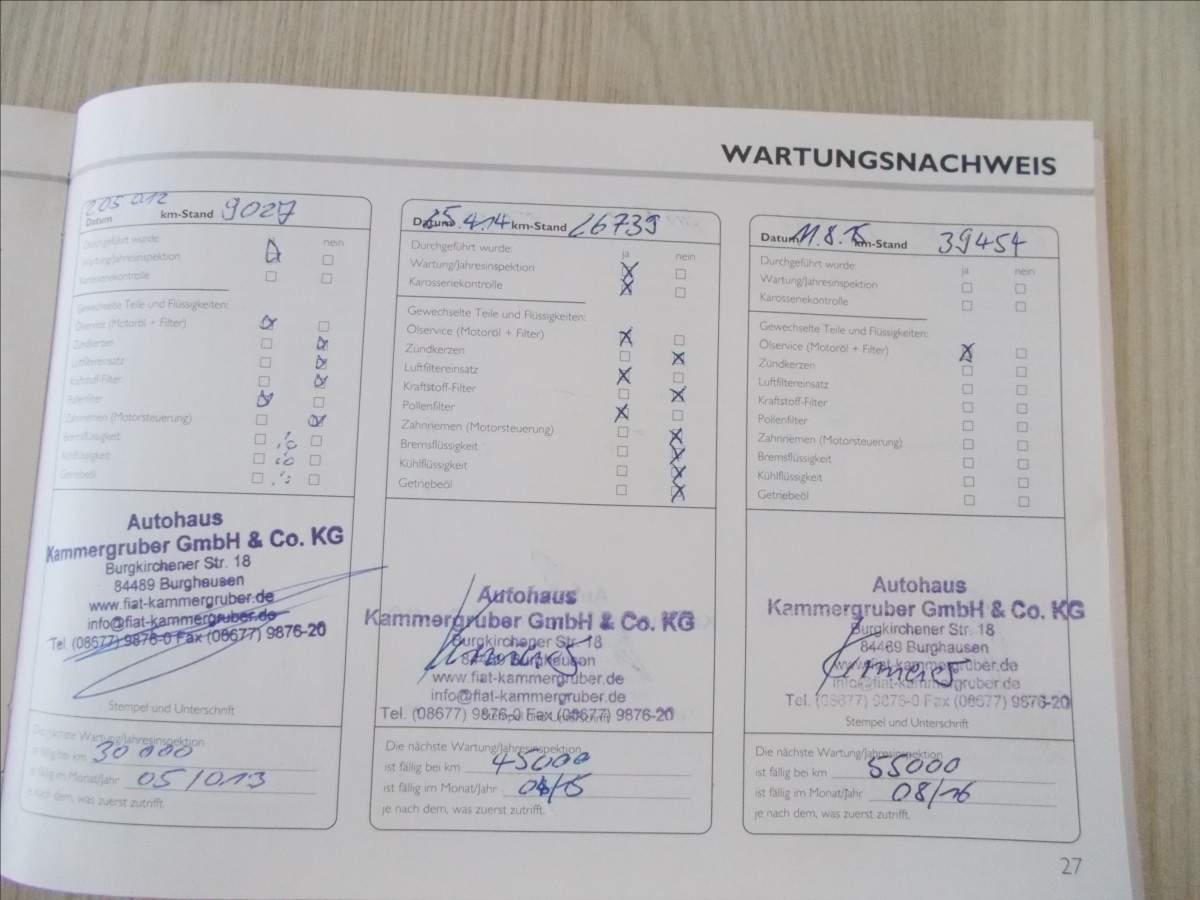 WARTUNGSNACHWEIS
Datum 2.05.012 km-Stand 9027
Durchgeführt wurde: ja nein
Wartung/Jahresinspektion
Karosseriekontrolle
Gewechselte Teile und Flüssigkeiten:
Ölservice (Motoröl + Filter)
Zündkerzen
Luftfiltereinsatz
Kraftstoff-Filter
Pollenfilter
Zahnriemen (Motorsteuerung)
Bremsflüssigkeit
Kühlflüssigkeit
Getriebeöl
Autohaus
Kammergruber GmbH & Co. KG
Burgkirchener Str. 18
84489 Burghausen
www.fiat-kammergruber.de
info@fiat-kammergruber.de
Tel. (08677) 9876-0 Fax (08677) 9876-20
Stempel und Unterschrift
Die nächste Wartung/Jahresinspektion
ist fällig bei km 30 000
ist fällig im Monat/Jahr 05/013
je nach dem, was zuerst zutrifft.
Datum 25.4.14 km-Stand 26739
Durchgeführt wurde: ja nein
Wartung/Jahresinspektion
Karosseriekontrolle
Gewechselte Teile und Flüssigkeiten:
Ölservice (Motoröl + Filter)
Zündkerzen
Luftfiltereinsatz
Kraftstoff-Filter
Pollenfilter
Zahnriemen (Motorsteuerung)
Bremsflüssigkeit
Kühlflüssigkeit
Getriebeöl
Autohaus
Kammergruber GmbH & Co. KG
Burgkirchener Str. 18
84489 Burghausen
www.fiat-kammergruber.de
info@fiat-kammergruber.de
Tel. (08677) 9876-0 Fax (08677) 9876-20
Die nächste Wartung/Jahresinspektion
ist fällig bei km 45000
ist fällig im Monat/Jahr 04/15
je nach dem, was zuerst zutrifft.
Datum 11.8.15 km-Stand 39454
Durchgeführt wurde: ja nein
Wartung/Jahresinspektion
Karosseriekontrolle
Gewechselte Teile und Flüssigkeiten:
Ölservice (Motoröl + Filter)
Zündkerzen
Luftfiltereinsatz
Kraftstoff-Filter
Pollenfilter
Zahnriemen (Motorsteuerung)
Bremsflüssigkeit
Kühlflüssigkeit
Getriebeöl
Autohaus
Kammergruber GmbH & Co. KG
Burgkirchener Str. 18
84489 Burghausen
www.fiat-kammergruber.de
info@fiat-kammergruber.de
Tel. (08677) 9876-0 Fax (08677) 9876-20
Stempel und Unterschrift
Die nächste Wartung/Jahresinspektion
ist fällig bei km 55000
ist fällig im Monat/Jahr 08/16
je nach dem, was zuerst zutrifft.
27